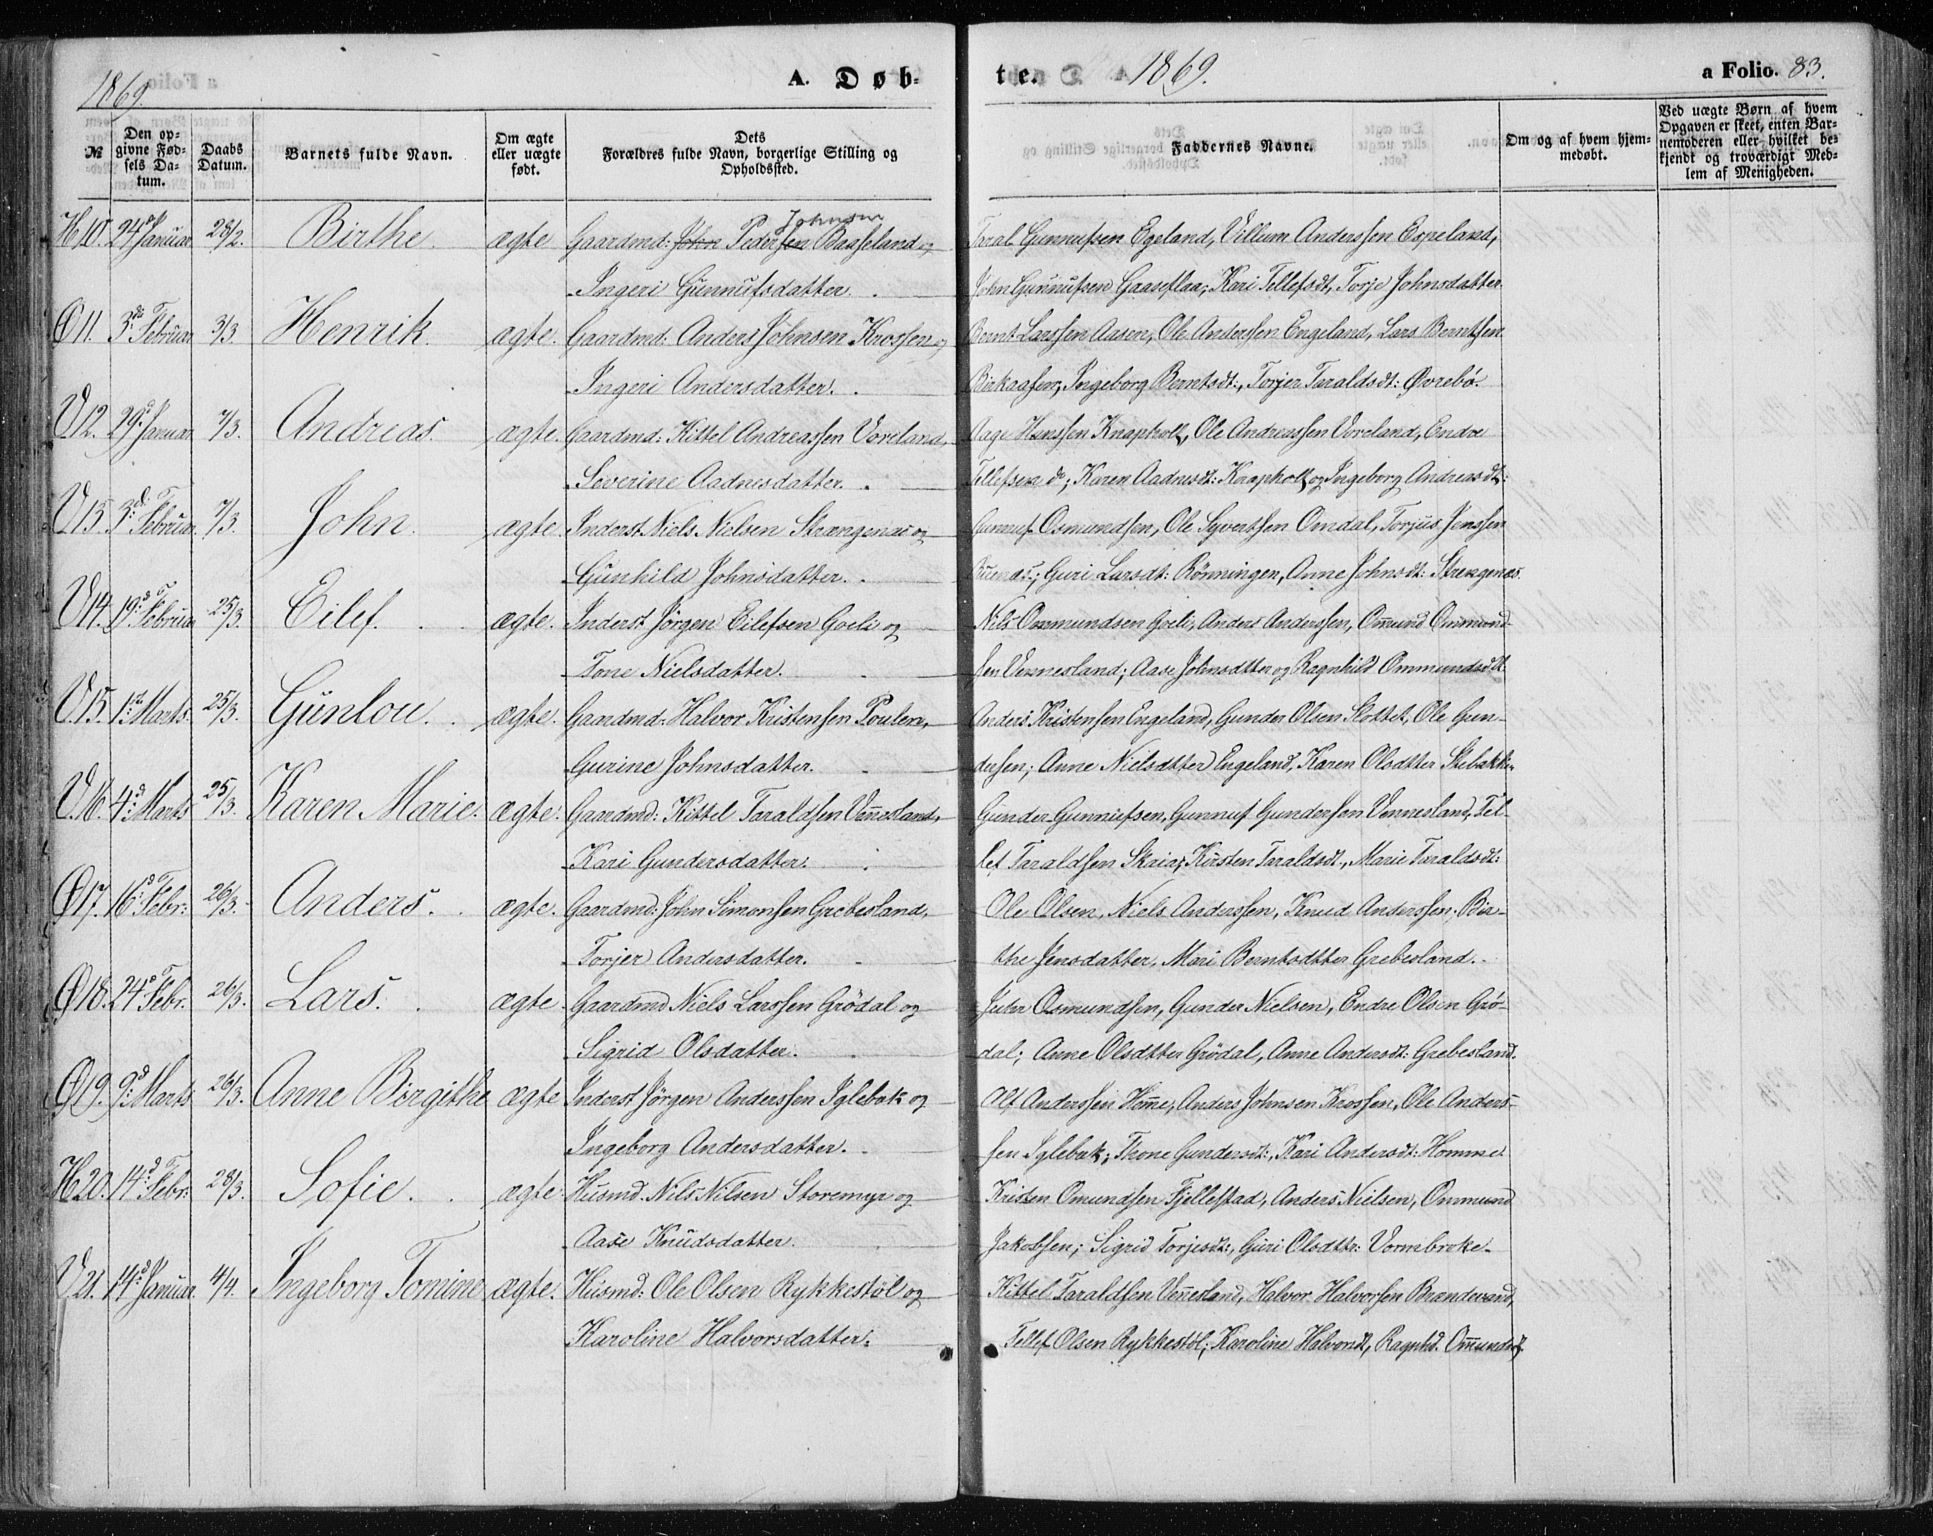 1869. A. Døb- te. 1869. a Folio. 83.
№ Den opgivne Fødsels Datum. Daabs Datum. Barnets fulde Navn. Om ægte eller uægte født. Dets Forældres fulde Navn, borgerlige Stilling og Opholdssted. Faddernes Navne. Om og af hvem hjemmedøbt. Ved uægte Børn af hvem Opgaven er skeet, enten Barnemoderen eller hvilket bekjendt og troværdigt Medlem af Menigheden.
Johnsen
H10. 24d Januar 28/2. Birthe. ægte Gaardmd: John Pedersen Baaseland og Taral Gunnufsen Egeland, Villum Anderssen Espeland,
Ingeri Gunnufsdatter. John Gunnufsen Gaaseflaa; Kari Tellefsdt, Torje Johnsdatter.
Ø11. 3de Februar 3/3. Henrik. ægte. Gaardmd: Anders Johnsen Krossen og Bernt Larssen Aasen, Ole Anderssen Engeland, Lars Berntsen
Ingeri Andersdatter. Birkaasen; Ingeborg Berntsdt:, Torjer Taraldsdt: Øvrebö.
V12. 29d Januar 7/3. Andreas. ægte. Gaardmd: Kittel Andreassen Voreland, Aage Hanssen Knapholt, Ole Andreassen Voreland, Endre
Severine Aadnesdatter. Tellefsen do; Karen Aadnesdt: Knapholt og Ingeborg Andreasdt:
V13. 3d Februar 7/3. John. ægte. Inderst Niels Nielsen Strængenæs og Gunnuf Osmundsen, Ole Syvertsen Omdal, Torjus Jenssen
Gunhild Johnsdatter. Guri Larsdt: Rönningen, Anne Johnsdt: Strengenæs.
V14. 19d Februar 25/3. Eilef. ægte. Inderst Jörgen Eilefsen Gveli og Nils Ommundsen Gveli, Anders Anderssen, Omund Ommund-
Tone Nielsdatter. sen Vennesland; Aase Johnsdtter og Ragnhild Ommundsdt.
V15. 1ste Marts. 25/3. Gunlou. ægte. Gaardmd: Halvor Kristensen Poulen, Anders Kristensen Engeland, Gunder Olsen Slottet, Ole Gun-
Gurine Johnsdatter. dersen; Anne Nielsdtter Engeland, Karen Olsdtter Stebakke.
V16. 4d Marts 25/3. Karen Marie. ægte. Gaardmd: Kittel Taraldsen Vennesland, Gunder Gunnufsen, Gunnuf Gundersen Vennesland, Tel-
Kari Gundersdatter. lef Taraldsen Skaia; Kirsten Taraldsdt:, Marie Taraldsdt:
Ø17. 16d Febr: 26/3. Anders. ægte. Gaardmd: John Simonsen Grebesland, Ole Olsen, Niels Anderssen, Knud Anderssen; Bir-
Torjer Andersdatter. the Jensdatter, Mari Berntsdtter Grebesland.
Ø18. 24d Febr. 26/3. Lars. ægte. Gaardmd Niels Larssen Grödal og Peder Osmundsen, Gunder Nielsen, Endre Olsen Grö-
Sigrid Olsdatter. dal; Anne Olsdtter Grödal, Anne Andersdt: Grebesland.
Ø19. 9d Marts 26/3. Anne Birgithe ægte Inderst Jörgen Anderssen Iglebæk og Olf Anderssen Home, Anders Johnsen Krossen, Ole Anders-
Ingeborg Andersdatter. sen Iglebæk; Thone Gundersdt:, Kari Andersdt: Homme.
H20. 14d Febr: 28/3. Sofie. ægte Husmd. Nils Nilsen Storemyr og Kristen Omundsen Fjellestad, Anders Nielsen, Ommund
Aase Knudsdatter. Jakobsen; Sigrid Torjesdt:, Guri Olsdtr: Vormbroke.
V21. 14d Januar 4/4. Ingeborg Tomine ægte. Husmd: Ole Olsen Rykkestöl og Kittel Taraldsen Vennesland, Halvor Halvorsen Brandevand,
Karoline Halvorsdatter. Tellef Olsen Rykkestöl; Karoline Halvorsdt, Ragnhd. Omundsdt.